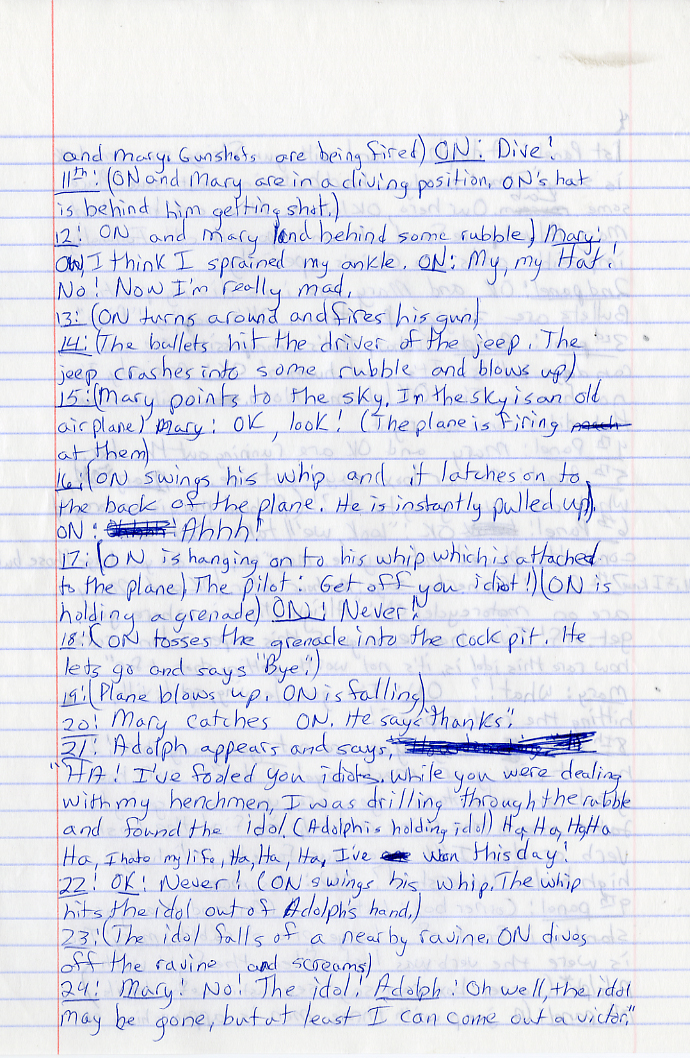 and Mary. Gunshots are being fired) ON: Dive!
11th: (ON and Mary are in a diving position. ON's hat
is behind him getting shot.)
12: ON and Mary land behind some rubble) Mary:
OW, I think I sprained my ankle. ON: My, my Hat!
No! Now I'm really mad.
13: (ON turns around and fires his gun)
14: (The bullets hit the driver of the jeep. The
jeep crashes into some rubble and blows up)
15: (Mary points to the sky. In the sky is an old
airplane) Mary: OK, look! (The plane is firing
at them)
16: (ON swings his whip and it latches on to
the back of the plane. He is instantly pulled up).
ON: Ahhh!
17: (ON is hanging on to his whip which is attached
to the plane) The pilot: Get off you idiot!) (ON is
holding a grenade) ON: Never!"
18: (ON tosses the grenade into the cockpit. He
lets go and says "Bye".)
19: (Plane blows up. ON is falling)
20: Mary catches ON. He says "thanks".
21: Adolph appears and says,
"HA! I've fooled you idiots. While you were dealing
with my henchmen, I was drilling through the rubble
and found the idol. (Adolph is holding idol) Ha, Ha, Ha, Ha
Ha, I hate my life, Ha, Ha, Ha, I've won this day!
22: OK: Never! (ON swings his whip. The whip
hits the idol out of Adolph's hand.)
23: (The idol falls of a nearby ravine. ON dives
off the ravine and screams)
24: Mary: No! The idol! Adolph: Oh well, the idol
may be gone, but at least I can come out a victor."